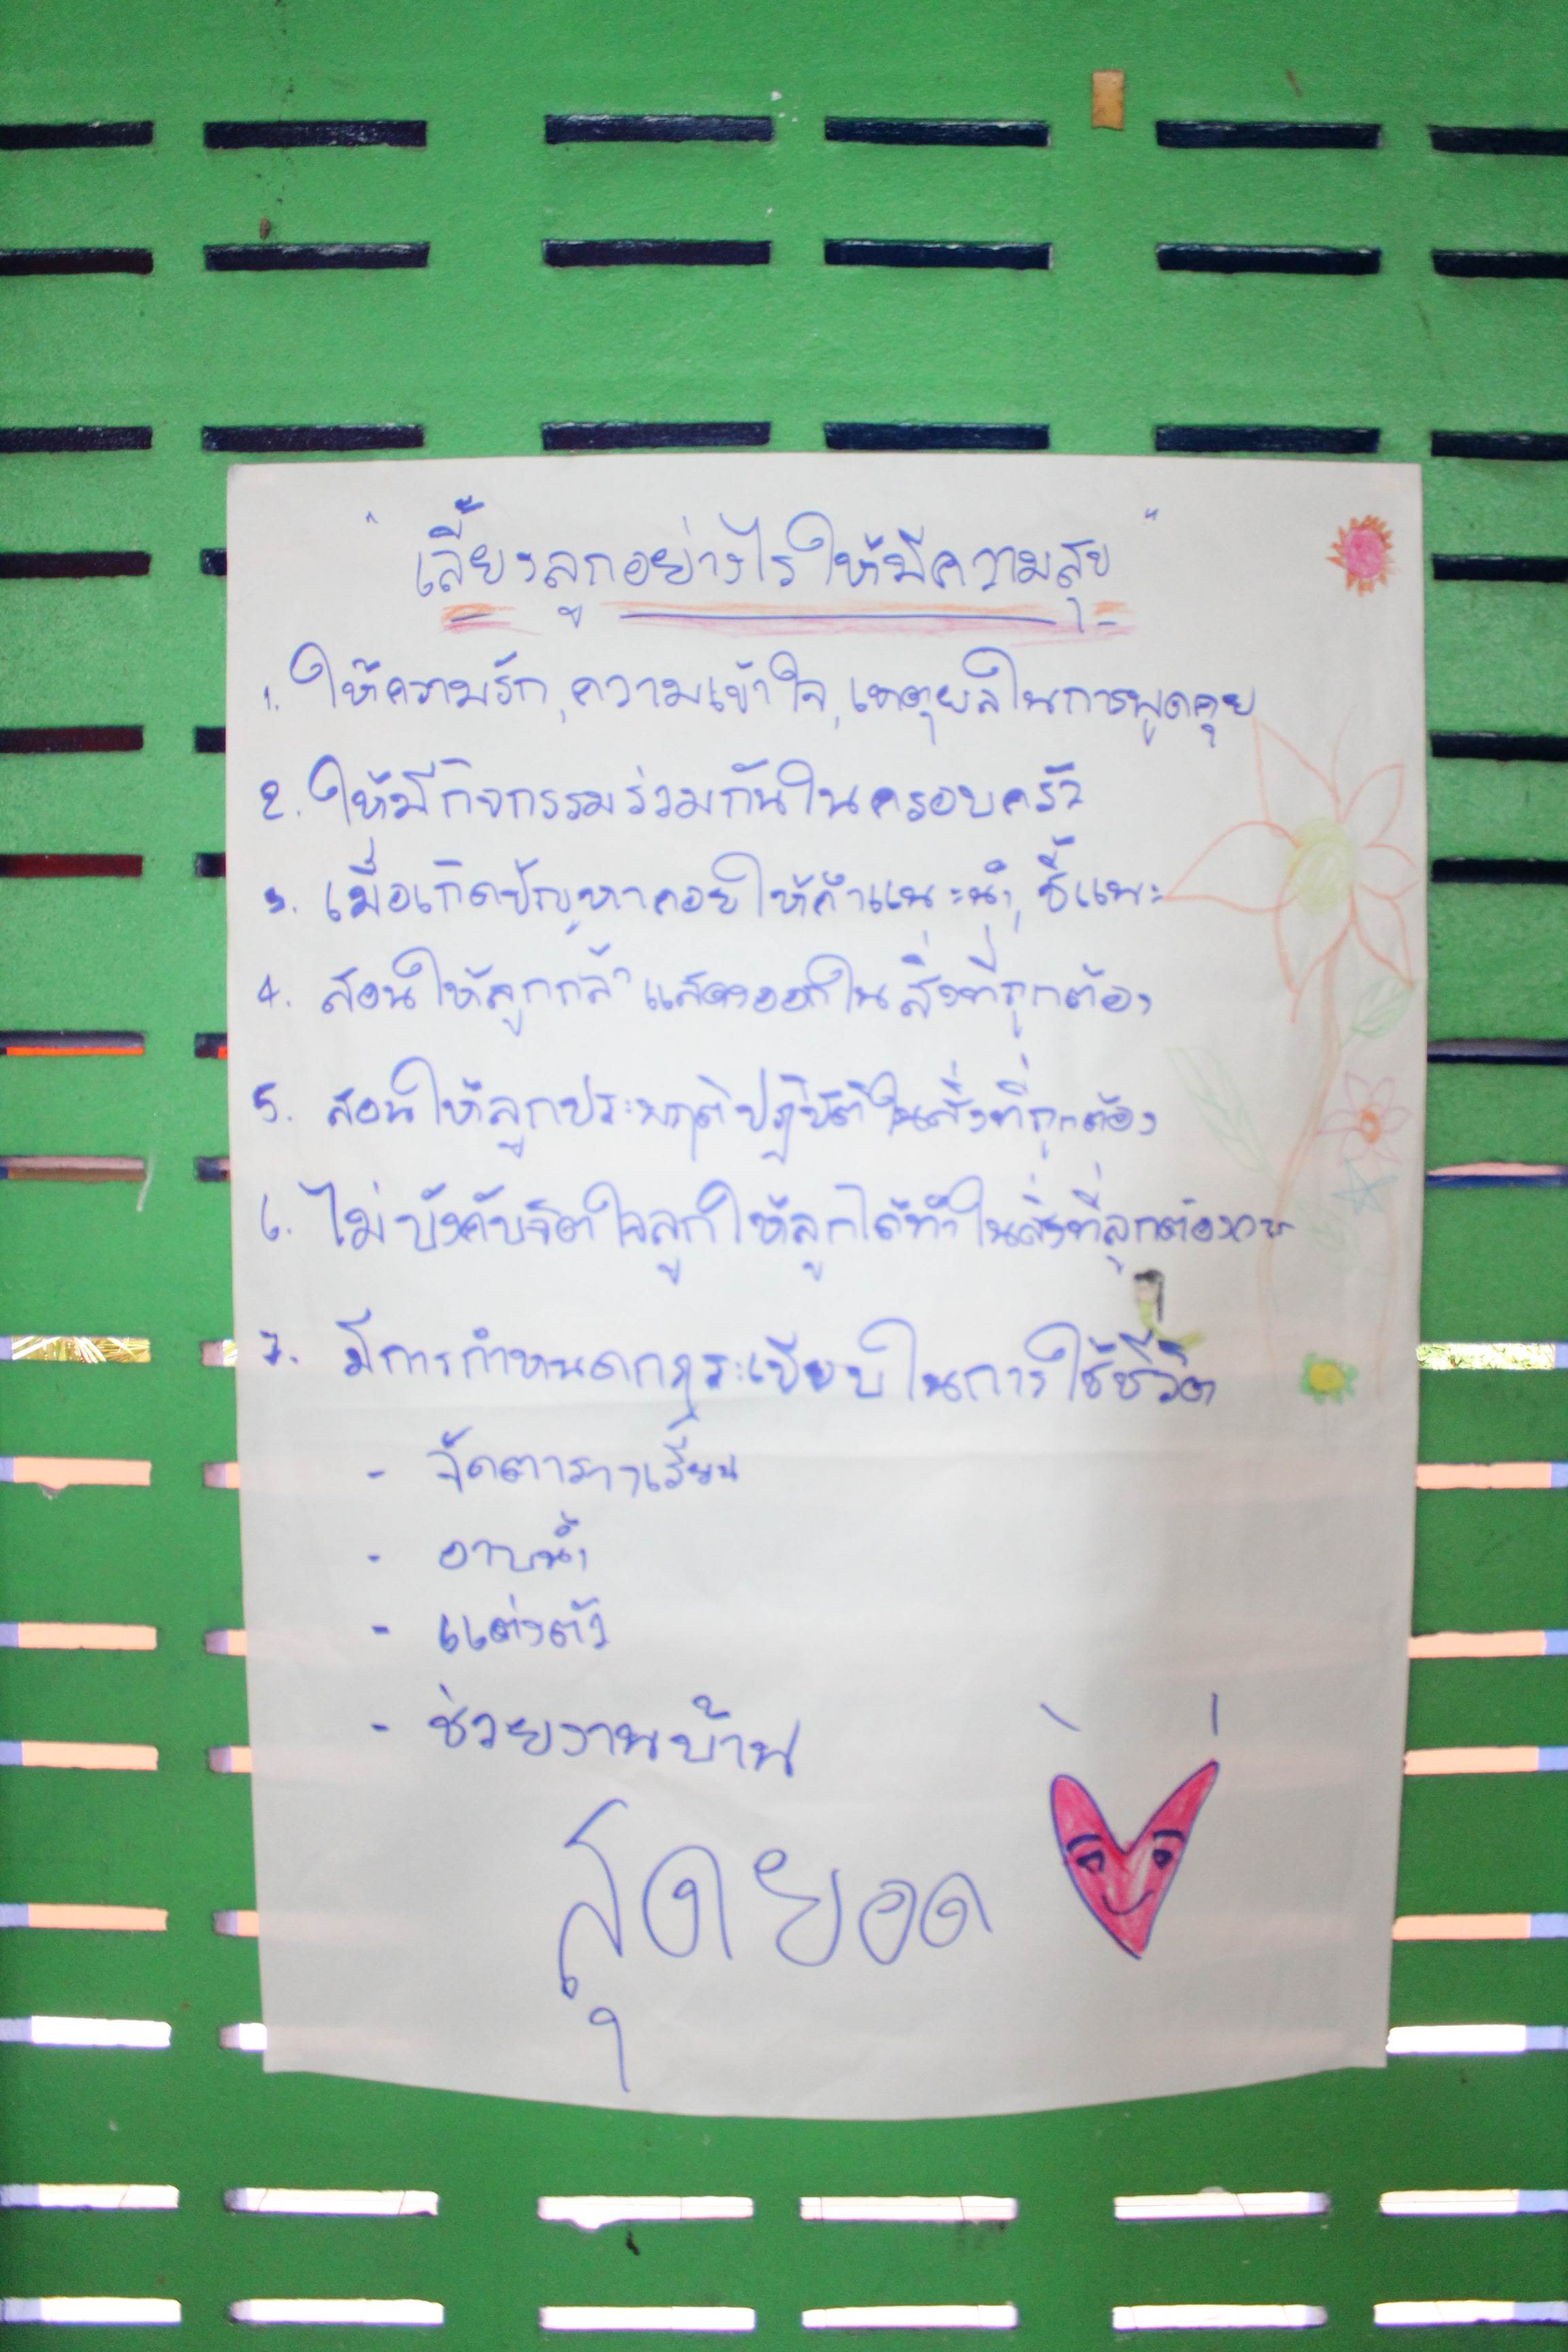 "เลี้ยงลูกอย่างไรให้มีความสุข"
1. ให้ความรัก, ความเข้าใจ, เหตุผลในการพูดคุย
2. ให้มีกิจกรรมร่วมกันในครอบครัว
3. เมื่อเกิดปัญหาคอยให้คำแนะนำ, ชี้แนะ
4. สอนให้ลูกกล้าแสดงออกในสิ่งที่ถูกต้อง
5. สอนให้ลูกประพฤติปฏิบัติในสิ่งที่ถูกต้อง
6. ไม่บังคับจิตใจลูกให้ลูกได้ทำในสิ่งที่ลูกต้องการ
7. มีการกำหนดกฎระเบียบในการใช้ชีวิต
- จัดตารางเรียน
- อาบน้ำ
- แต่งตัว
- ช่วยงานบ้าน
สุดยอด